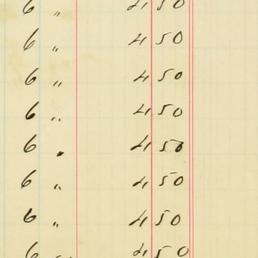 6 " 4 50
6 " 4 50
6 " 4 50
6 " 4 50
6 " 4 50
6 " 4 50
6 " 4 50
6 " 4 50